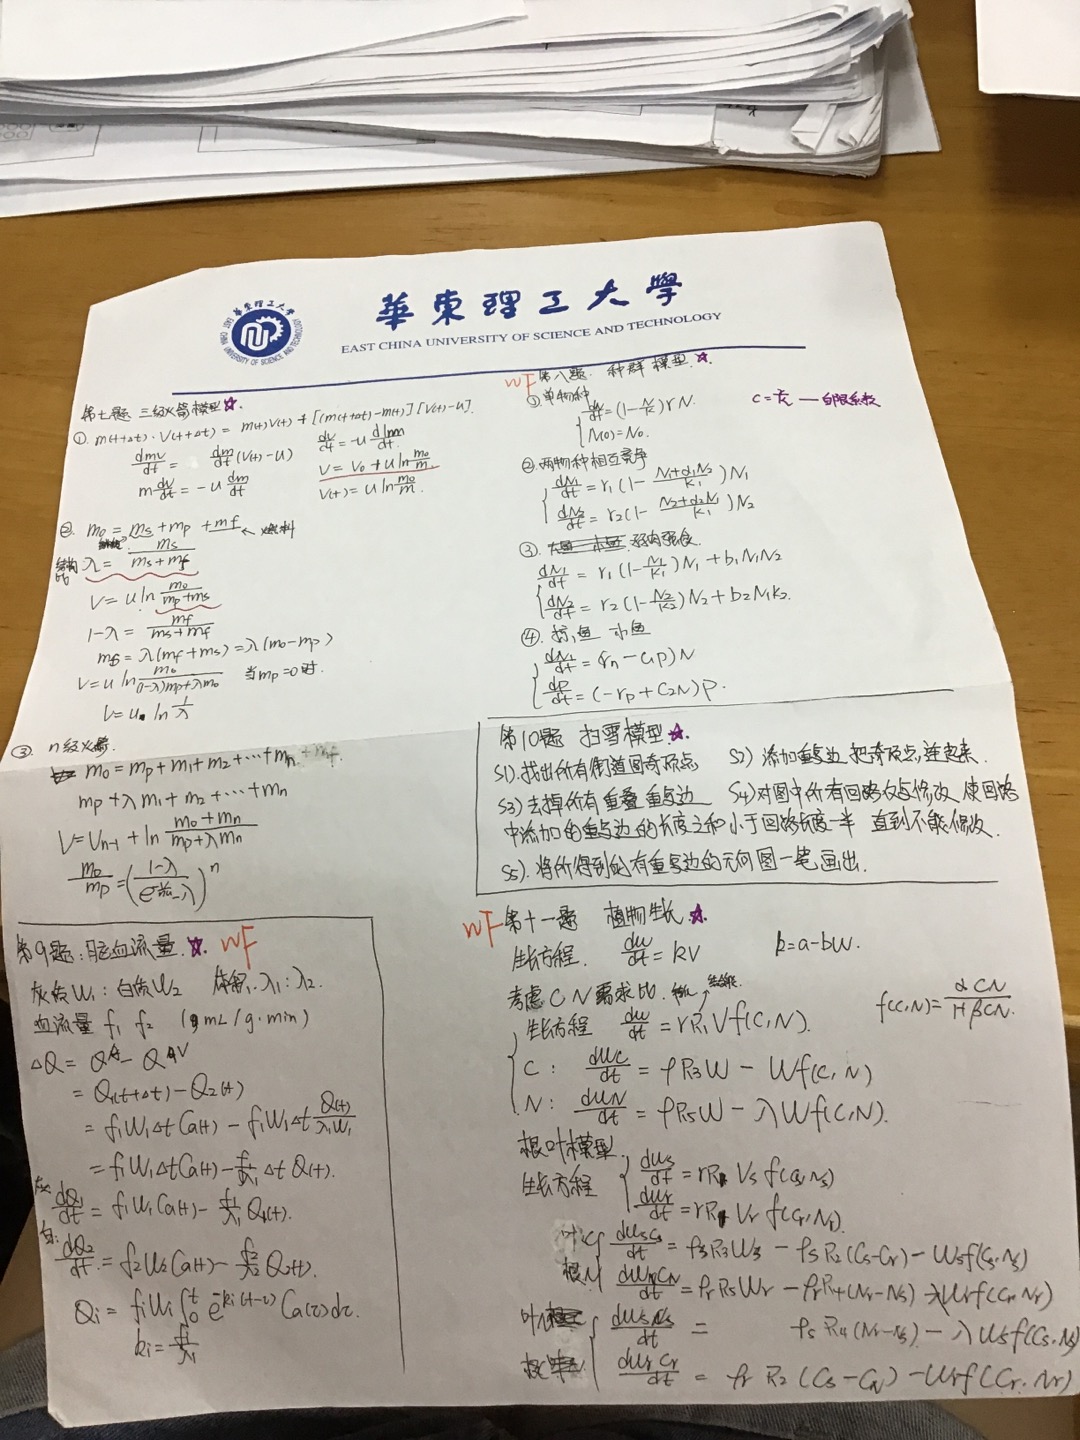 華東理工大學
EAST CHINA UNIVERSITY OF SCIENCE AND TECHNOLOGY
第七题 三级火箭模型 ☆.
①. m(t+Δt)·V(t+Δt) = m(t)V(t) + [m(t+Δt)-m(t)][V(t)-u].
dmv/dt = dm/dt (V(t)-u) dv/dt = -u dlnm/dt.
m dv/dt = -u dm/dt V = V0 + u ln m0/m
V(t) = u ln m0/m.
②. m0 = ms + mp + mf ← 燃料
结构比 λ = ms/(ms+mf)
V = u ln m0/(mp+ms)
1-λ = mf/(ms+mf)
= λ(mf+ms) = λ(m0-mp)
V = u ln m0/((1-λ)mp+λm0) 当mp=0时.
V = u ln 1/λ
③. n级火箭.
m0 = mp+m1+m2+⋯+mn
mp+λm1+m2+⋯+mn
V = Vn-1 + ln (m0+mn)/(mp+λmn)
第9题: 脑血流量. ☆. WF
灰质W1: 白质W2 λ1: λ2.
血流量 f1 f2 (mL/g·min)
= Q1(t+Δt)-Q2(t)
= f1W1Δt Ca(t) - f1W1Δt Q(t)/λ1W1
= f1W1Δt Ca(t) - f1/λ1 Δt Q(t).
灰: dQ1/dt = f1W1Ca(t) - f1/λ1 Q1(t).
白: dQ2/dt = f2W2Ca(t) - f2/λ2 Q2(t).
Qi = fiWi ∫0t e-ki(t-τ) Ca(τ)dτ.
ki = fi/λi
WF 第八题. 种群模型. ☆.
①单物种
dN/dt = (1-N/K) r N.
N(0) = N0.
②. 两物种相互竞争
dN1/dt = r1(1- (N1+α1N2)/K1)N1
dN2/dt = r2(1- (N2+α2N1)/K1)N2
③. 弱肉强食.
dN1/dt = r1(1-N1/K1)N1+b1N1N2
dN2/dt = r2(1-N2/K2)N2+b2N1K2.
dP/dt = (-rp+C2N)P.
自限系数
第10题 扫雪模型. ☆
S1). 找出所有街道图奇顶点 S2) 添加重复边 把奇顶点连起来.
S3) 去掉所有重叠重复边 S4) 对图中所有回路 修改 使回路
中添加的重复边的长度之和小于回路长度一半 直到不能修改.
S5). 将所得到的有重复边的无向图一笔画出.
WF 第十一题 植物生长 ☆.
生长方程. dw/dt = kV k=a-bW.
考虑C N需求比.
f(C,N) = αCN/(1+βCN).
生长方程 dw/dt = rR1Vf(C,N).
C: dWC/dt = ρR3W - Wf(C,N)
N: dWN/dt = ρR5W - λWf(C,N).
根叶模型.
生长方程 dWs/dt = rR Vs f(Cs,Ns)
dWr/dt = rR Vr f(Cr,Nr).
dWsCs/dt = ρsR3Ws - ρsR2(Cs-Cr) - Wsf(Cs,Ns)
= ρrR5Wr - ρrR4(Nr-Ns) - λWrf(Cr,Nr)
dWsNs/dt = ρsR4(Nr-Ns) - λWsf(Cs,Ns)
dWrCr/dt = ρr R2(Cs-Cr) - Wrf(Cr,Nr)